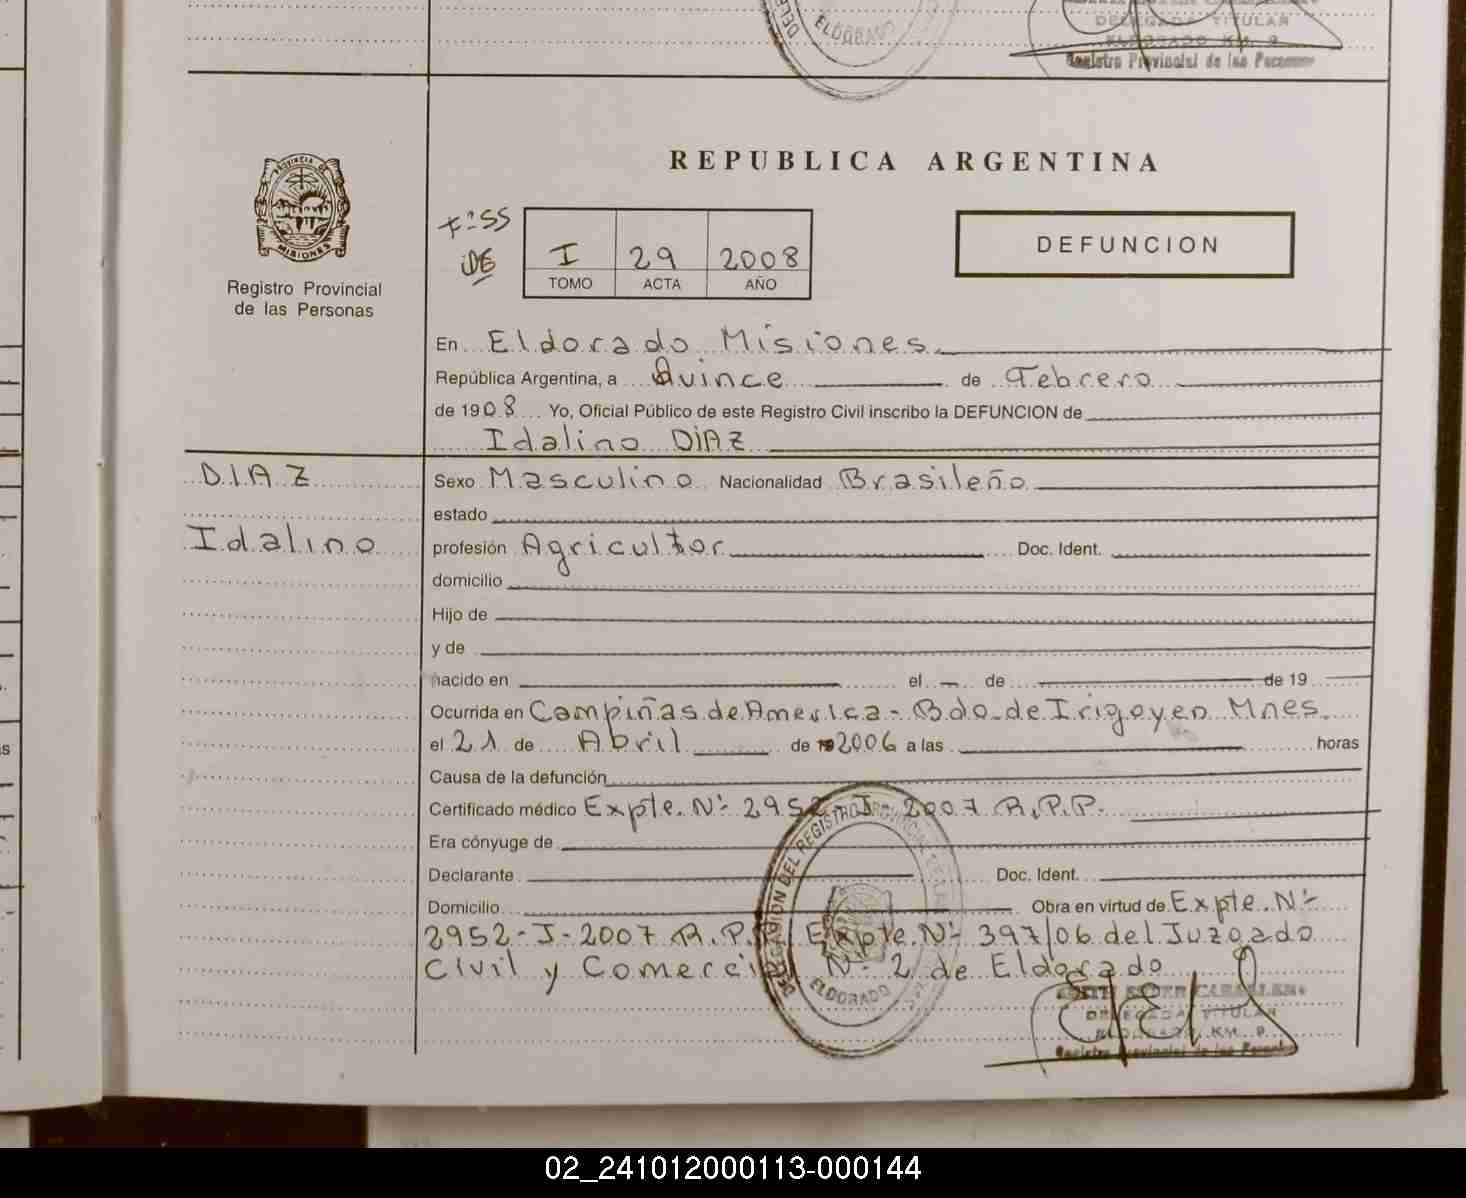 ELDORADO
DELEGADA TITULAR
ELDORADO KM. 9
Registro Provincial de las Personas
REPUBLICA ARGENTINA
PROVINCIA DE
MISIONES
Registro Provincial
de las Personas
Fº 55
I 29 2008
TOMO ACTA AÑO
DEFUNCION
En Eldorado Misiones
República Argentina, a Quince de Febrero
de 1908 Yo, Oficial Público de este Registro Civil inscribo la DEFUNCION de
Idalino DIAZ
DIAZ
Idalino
Sexo Masculino Nacionalidad Brasileño
estado
profesión Agricultor Doc. Ident.
domicilio
Hijo de
y de
nacido en el de de 19
Ocurrida en Campiñas de America - Bdo. de Irigoyen Mnes.
el 21 de Abril de 2006 a las horas
Causa de la defunción
Certificado médico Expte. Nº 2952-J-2007 R.P.P.
Era cónyuge de
Declarante Doc. Ident.
Domicilio Obra en virtud de Expte. Nº
2952-J-2007 R.P.P. Expte. Nº 397/06 del Juzgado
Civil y Comercial Nº 2 de Eldorado
DELEGACION DEL REGISTRO PROVINCIAL DE LAS
ELDORADO
DELEGADA TITULAR
ELDORADO KM. 9
Registro Provincial de las Personas
02_241012000113-000144